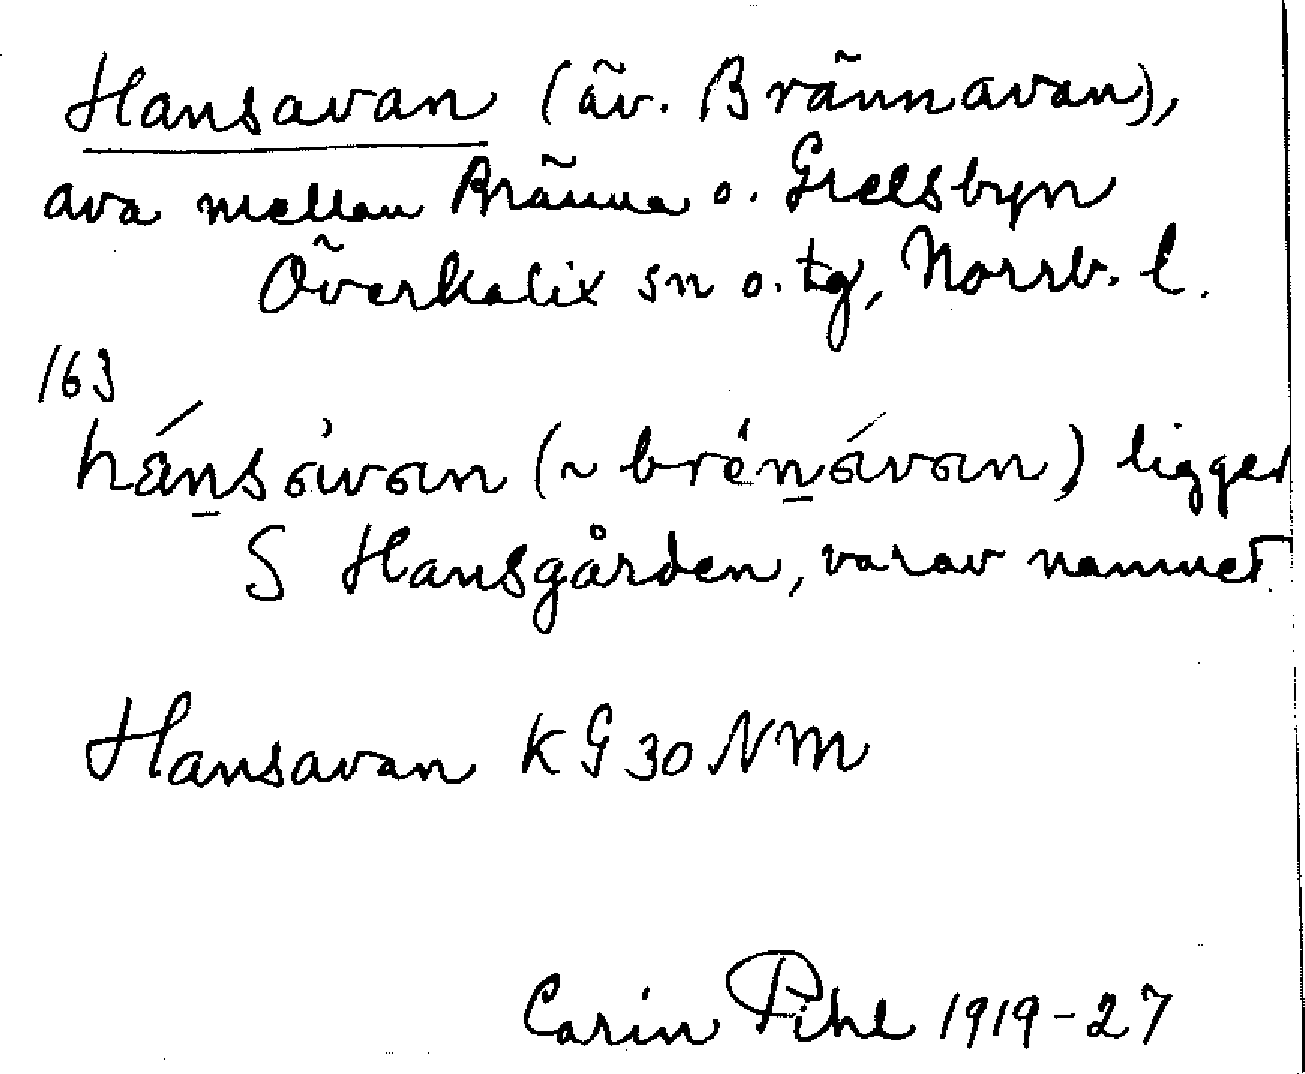 Hansavan (äv. Brännavan),
ava mellan Bränna o. Grelsbyn
Överkalix sn o. tg, Norrb. l.
163
hánsàvan (~ brénávan) ligger
S Hansgården, varav namnet.
Hansavan KG 30 NM
Carin Pihl 1919-27